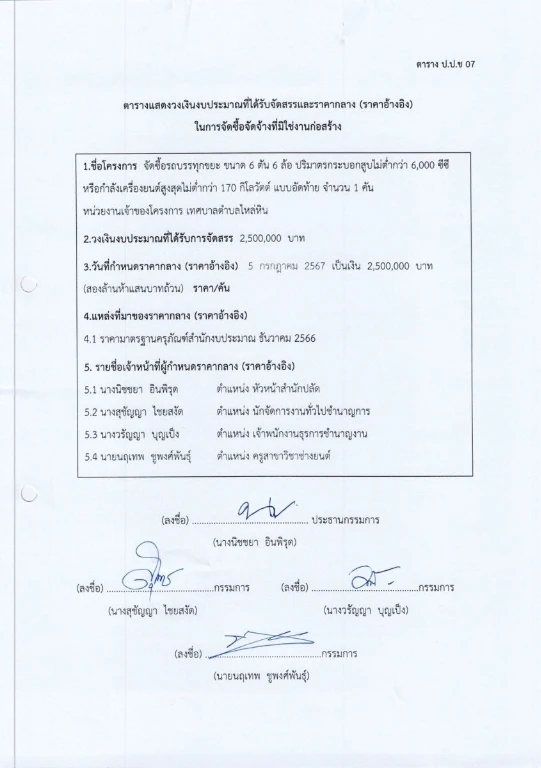 ตาราง ป.ป.ช 07
ตารางแสดงวงเงินงบประมาณที่ได้รับจัดสรรและราคากลาง (ราคาอ้างอิง)
ในการจัดซื้อจัดจ้างที่มิใช่งานก่อสร้าง
1.ชื่อโครงการ จัดซื้อรถบรรทุกขยะ ขนาด 6 ตัน 6 ล้อ ปริมาตรกระบอกสูบไม่ต่ำกว่า 6,000 ซีซี
หรือกำลังเครื่องยนต์สูงสุดไม่ต่ำกว่า 170 กิโลวัตต์ แบบอัดท้าย จำนวน 1 คัน
หน่วยงานเจ้าของโครงการ เทศบาลตำบลไหล่หิน
2.วงเงินงบประมาณที่ได้รับการจัดสรร 2,500,000 บาท
3.วันที่กำหนดราคากลาง (ราคาอ้างอิง) 5 กรกฎาคม 2567 เป็นเงิน 2,500,000 บาท
(สองล้านห้าแสนบาทถ้วน) ราคา/คัน
4.แหล่งที่มาของราคากลาง (ราคาอ้างอิง)
4.1 ราคามาตรฐานครุภัณฑ์สำนักงบประมาณ ธันวาคม 2566
5. รายชื่อเจ้าหน้าที่ผู้กำหนดราคากลาง (ราคาอ้างอิง)
5.1 นางนิชชยา อินพิรุด ตำแหน่ง หัวหน้าสำนักปลัด
5.2 นางสุชัญญา ไชยสงัด ตำแหน่ง นักจัดการงานทั่วไปชำนาญการ
5.3 นางวรัญญา บุญเป็ง ตำแหน่ง เจ้าพนักงานธุรการชำนาญงาน
5.4 นายนฤเทพ ชูพงศ์พันธุ์ ตำแหน่ง ครูสาขาวิชาช่างยนต์
(ลงชื่อ) ........................................ ประธานกรรมการ
(นางนิชชยา อินพิรุด)
(ลงชื่อ) ........................................กรรมการ (ลงชื่อ) ........................................กรรมการ
(นางสุชัญญา ไชยสงัด) (นางวรัญญา บุญเป็ง)
(ลงชื่อ) ........................................กรรมการ
(นายนฤเทพ ชูพงศ์พันธุ์)